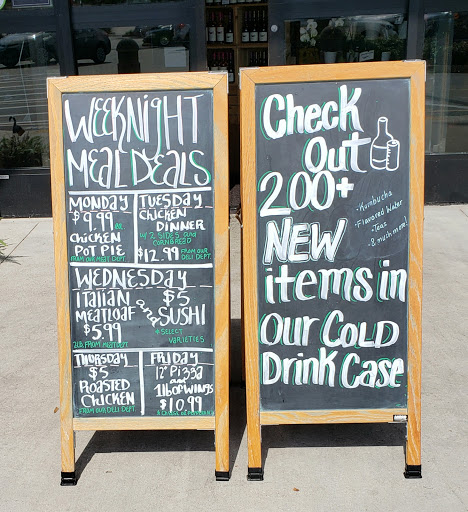 WEEKNIGHT
MEAL DEALS
MONDAY
$9.99 EA.
CHICKEN
POT PIE
FROM OUR MEAT DEPT.
TUESDAY
CHICKEN
DINNER
W/ 2 SIDES and
CORNBREAD
$12.99 FROM OUR
DELI DEPT.
WEDNESDAY
ITALIAN
MEATLOAF
$5.99
2LB. FROM MEAT DEPT.
and
$5
SUSHI
* SELECT
VARIETIES
THURSDAY
$5
ROASTED
CHICKEN
FROM OUR DELI DEPT.
FRIDAY
12" Pizza
and
1lb OF WINGS
$10.99
Check
Out
200+
NEW
items in
Our COLD
DRINK CASE
- Kombucha
- Flavored Water
- Teas
& much more!